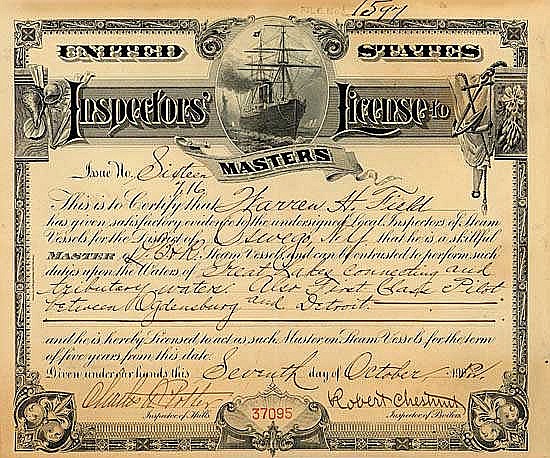 1597
UNITED STATES
Inspectors' License to
MASTERS
Issue No. Sixteen
716
This is to Certify that Warren H. Field
has given satisfactory evidence to the undersigned Local Inspectors of Steam
Vessels for the District of Oswego, N.Y. that he is a skillful
MASTER of Steam Vessels, and can be entrusted to perform such
duties upon the Waters of Great Lakes connecting and
tributary waters. Also First Class Pilot
between Ogdensburg and Detroit.
and he is hereby Licensed to act as such Master on Steam Vessels for the term
of five years from this date.
Given under our hands this Seventh day of October
Robert Chestnut
Inspector of Hulls. Inspector of Boilers.
37095